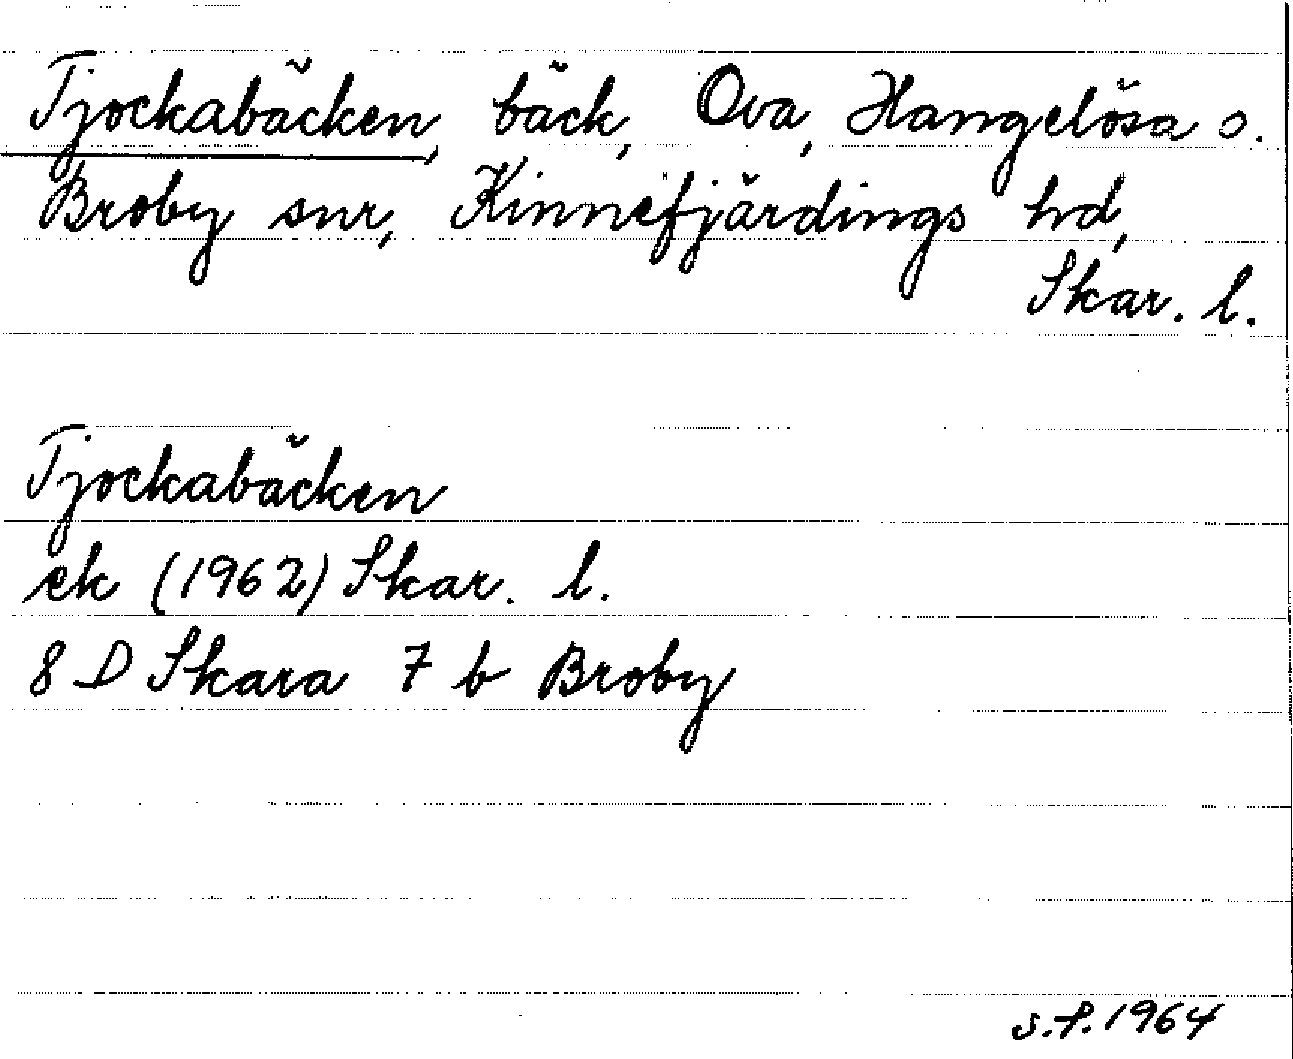 Tjockabäcken, bäck, Ova, Hangelösa o.
Broby snr, Kinnefjärdings hd,
Skar. l.
Tjockabäcken
ek (1962) Skar. l.
8 D Skara 7 b Broby
S.P. 1964